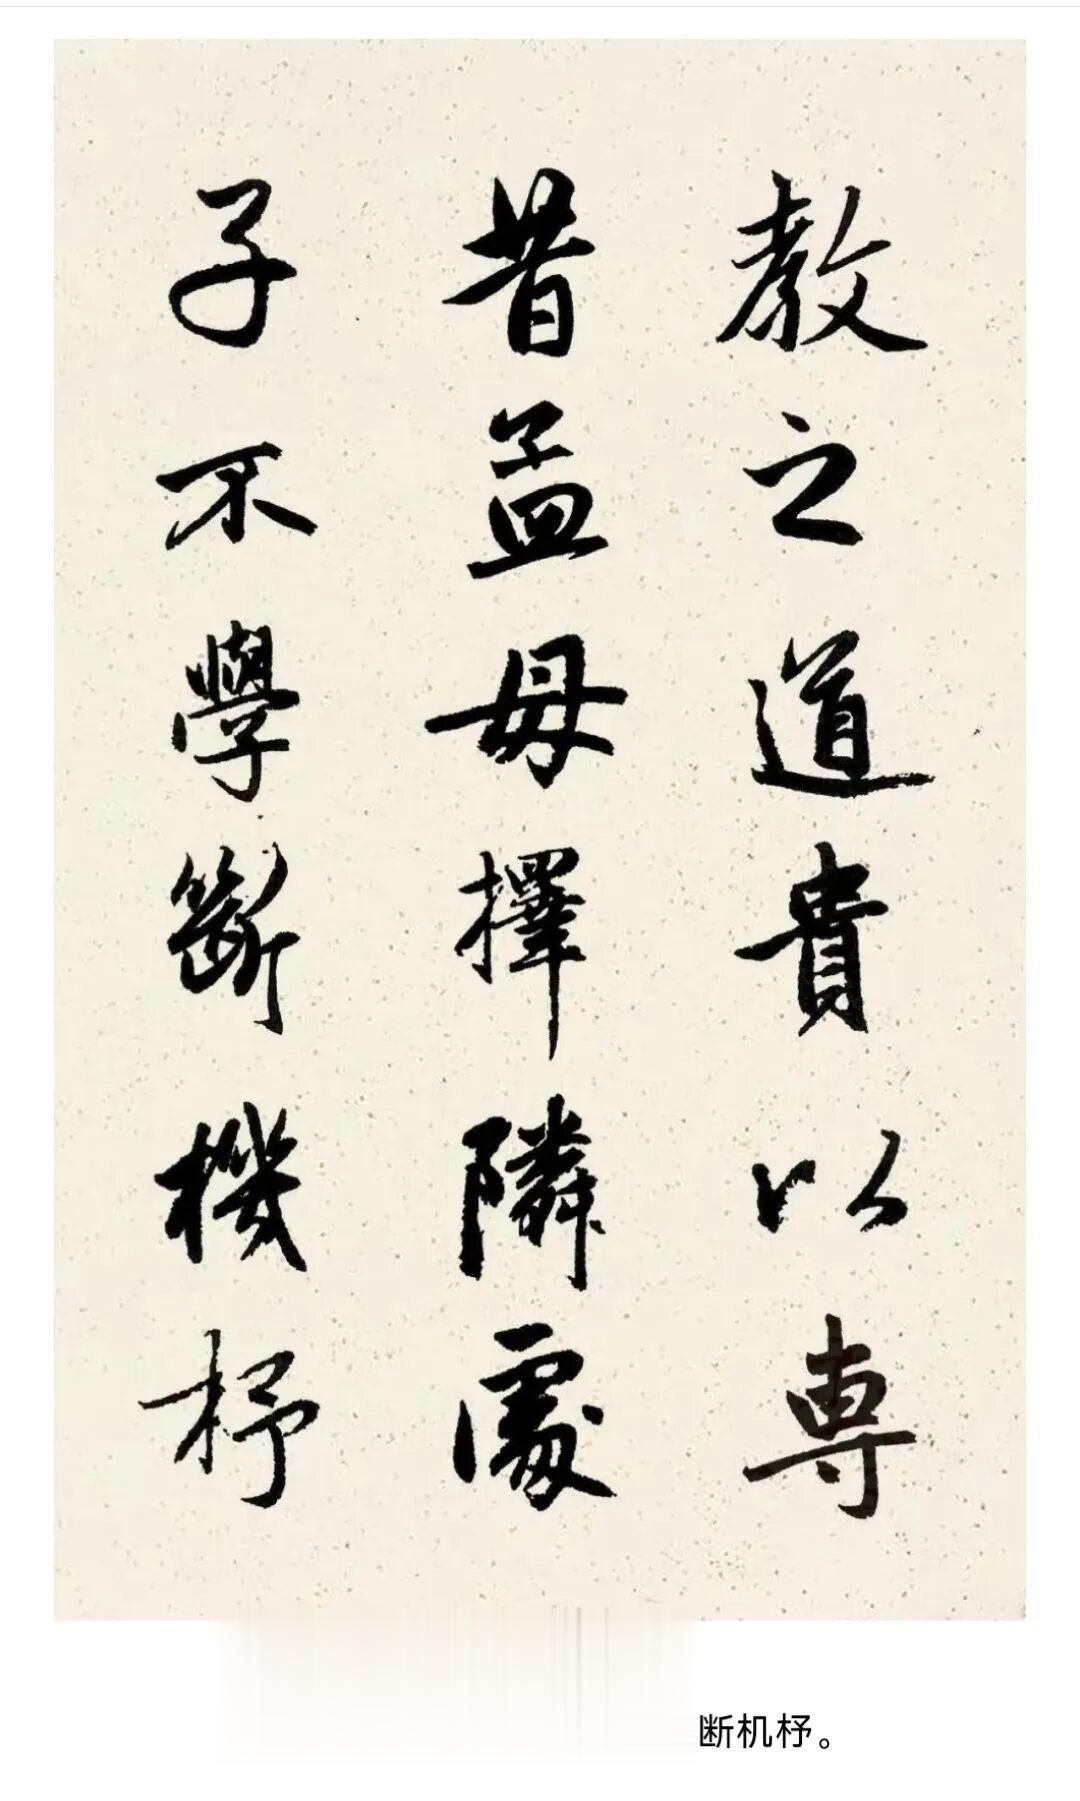 教之道貴以専
昔孟母擇隣處
子不學斷機杼
断机杼。